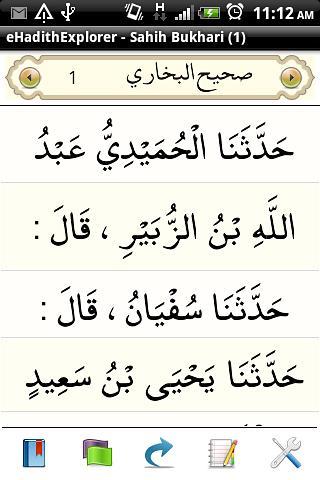 11:12 AM
eHadithExplorer - Sahih Bukhari (1)
صحيح البخاري 1
حَدَّثَنَا الْحُمَيْدِيُّ عَبْدُ
اللَّهِ بْنُ الزُّبَيْرِ ، قَالَ :
حَدَّثَنَا سُفْيَانُ ، قَالَ :
حَدَّثَنَا يَحْيَى بْنُ سَعِيدٍ